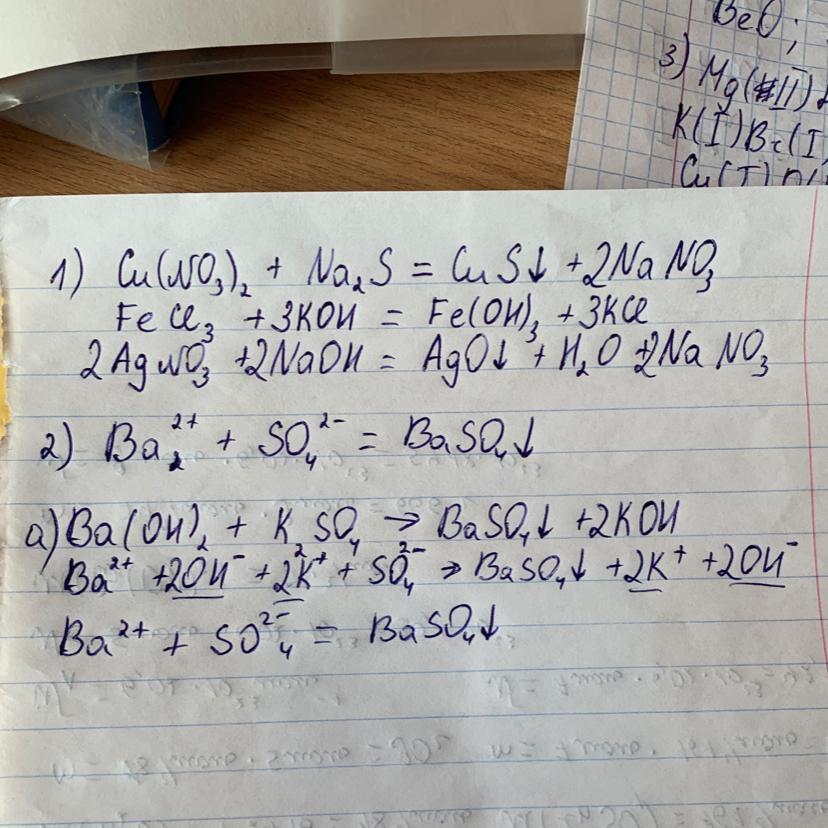 BeO;
3) Mg(II)
K(I)Br(I
Cu(I)
1) Cu(NO₃)₂ + Na₂S = CuS↓ + 2NaNO₃
FeCl₃ + 3KOH = Fe(OH)₃ + 3KCl
2AgNO₃ + 2NaOH = AgO↓ + H₂O + 2NaNO₃
2) Ba₂²⁺ + SO₄²⁻ = BaSO₄↓
a) Ba(OH)₂ + K₂SO₄ → BaSO₄↓ + 2KOH
Ba²⁺ + 2OH⁻ + 2K⁺ + SO₄²⁻ → BaSO₄↓ + 2K⁺ + 2OH⁻
Ba²⁺ + SO₄²⁻ = BaSO₄↓